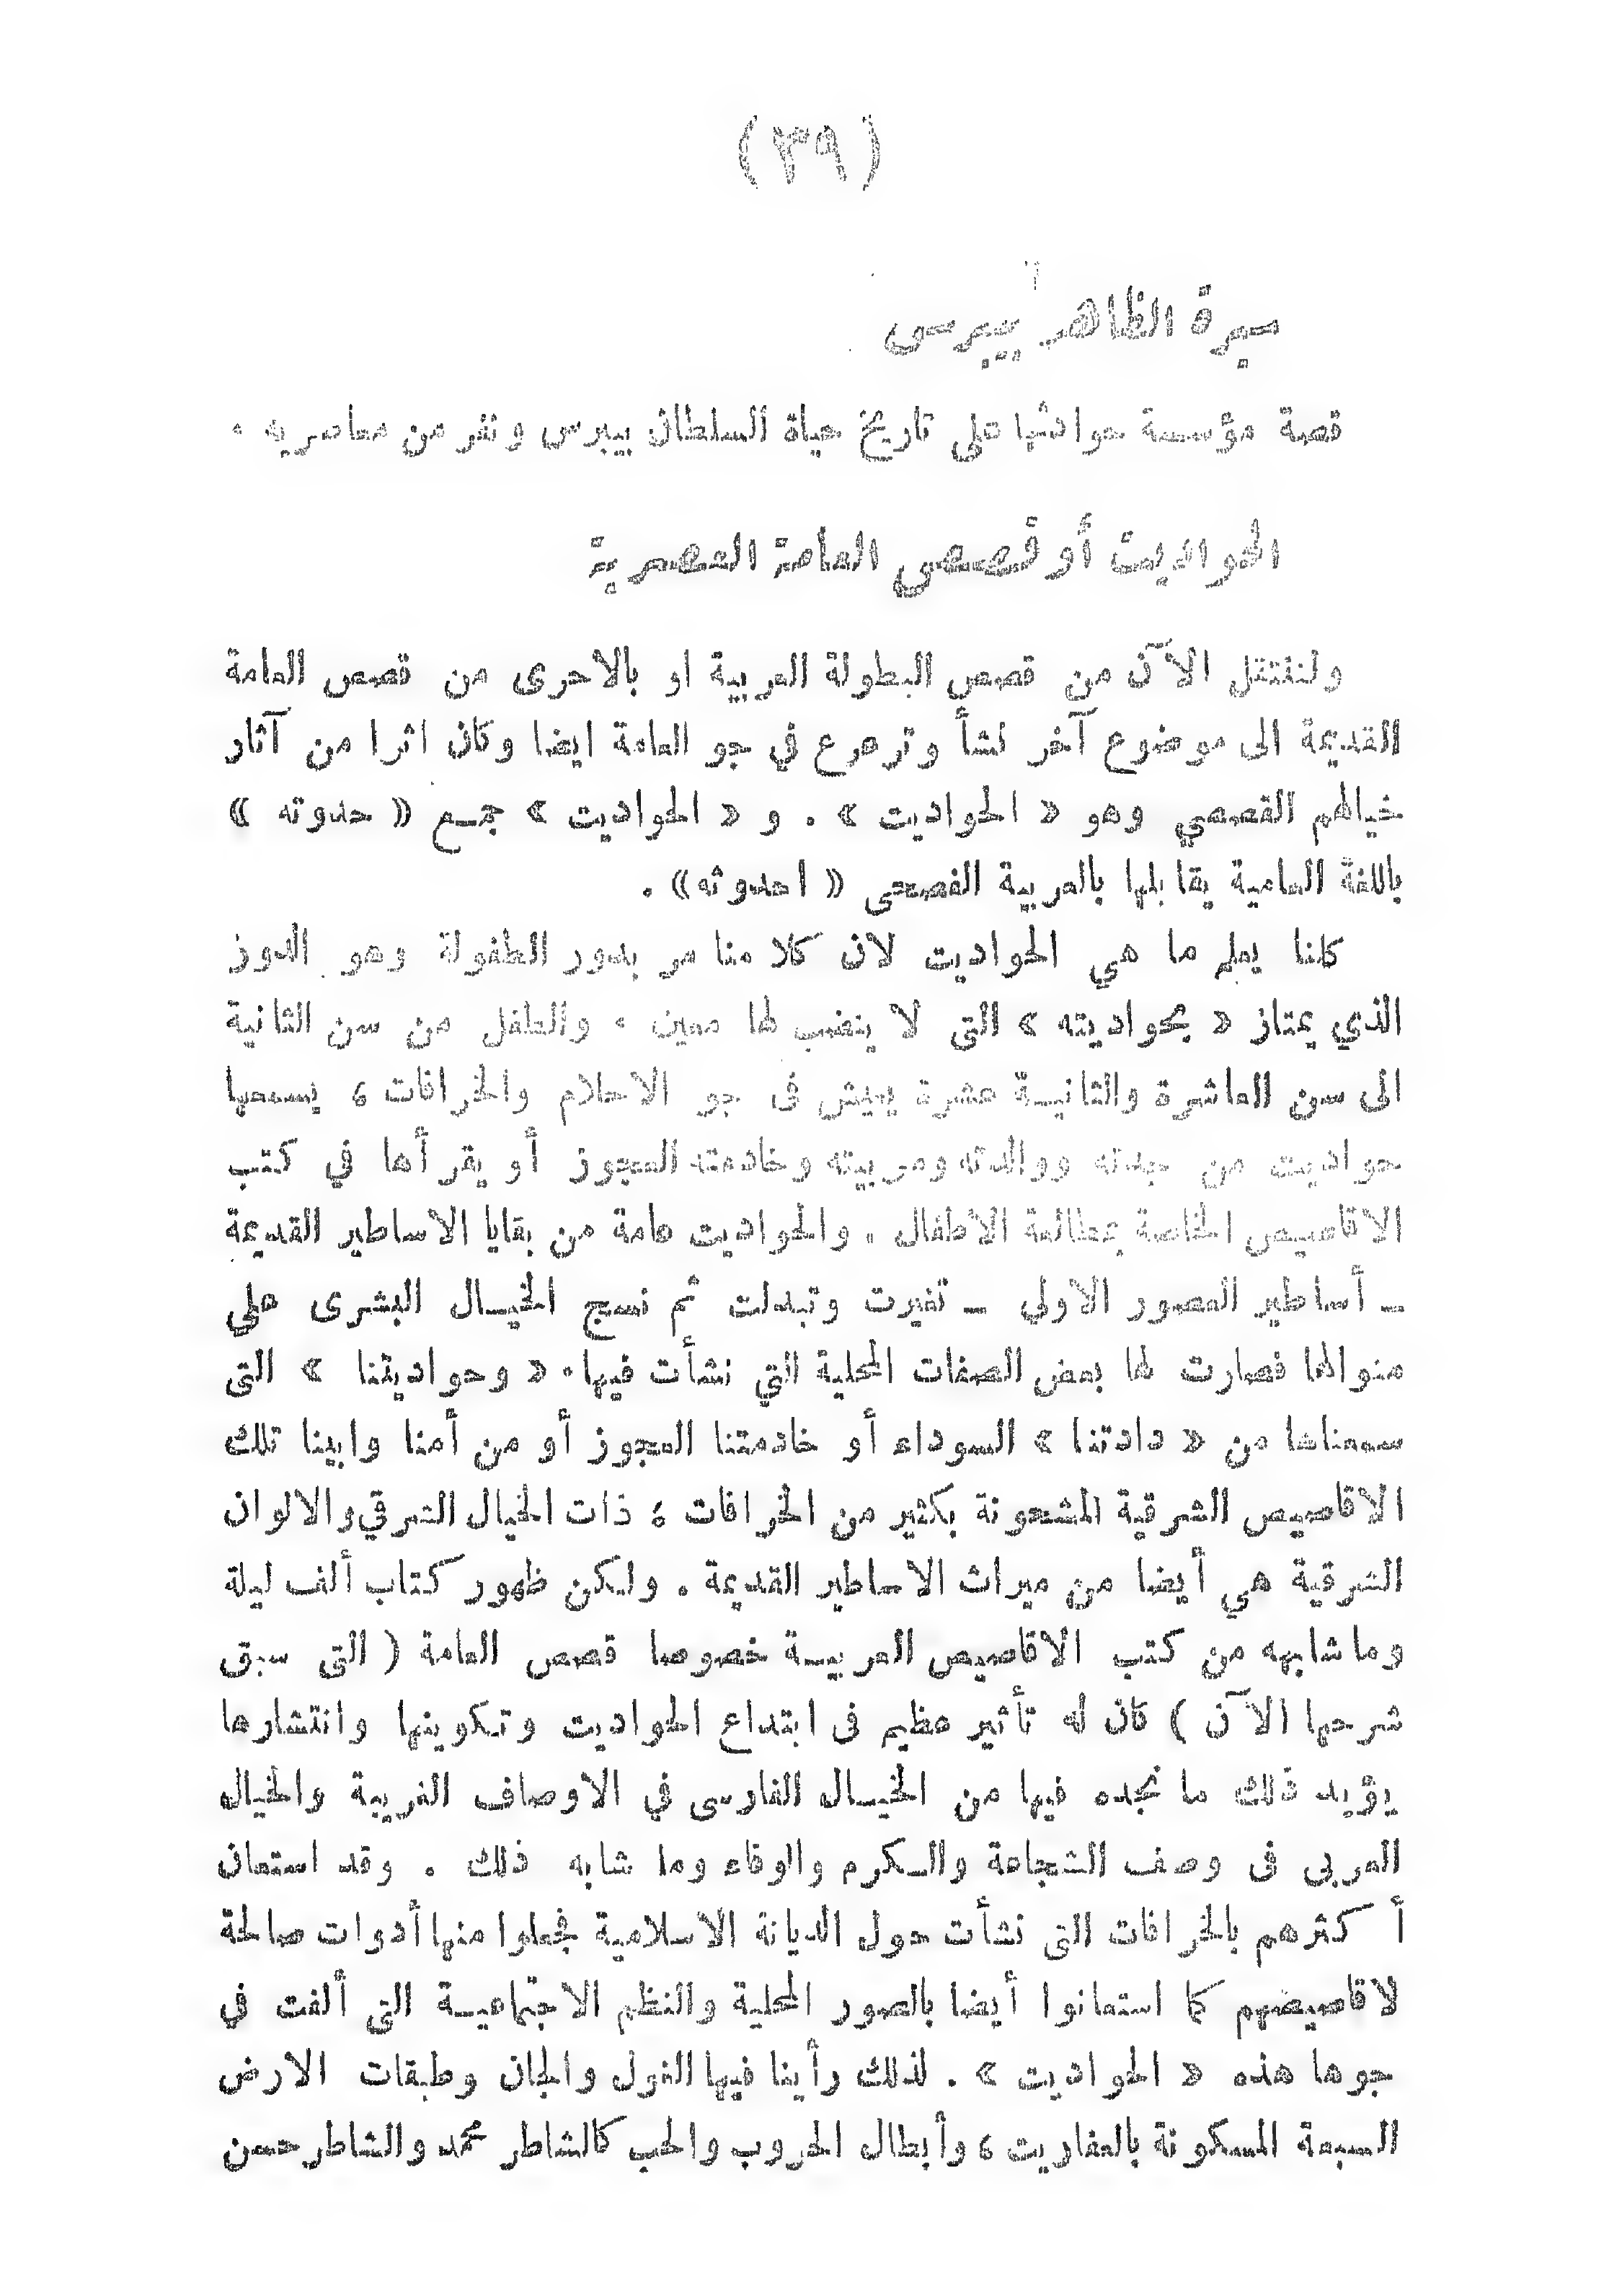 (٣٩)
سيرة الظاهر بيبرس
قصة مؤسسة حوادثها على تاريخ حياة السلطان بيبرس ونفر من معاصريه .
الحواديت أو قصص العامة العصرية
ولننتقل الآن من قصص البطولة العربية او بالاحرى من قصص العامة
القديمة الى موضوع آخر نشأ وترعرع في جو العامة ايضا وكان اثرا من آثار
خيالهم القصصي وهو « الحواديت » . و « الحواديت » جمع « حدوته »
باللغة العامية يقابلها بالعربية الفصحى « احدوثه» .
كلنا يعلم ما هي الحواديت لان كلا منا مر بدور الطفولة وهو الدور
الذي يمتاز « بحواديته » التى لا ينضب لها معين . والطفل من سن الثانية
الى سن العاشرة والثانيـة عشرة يعيش فى جو الاحلام والخرافات ، يسمعها
حواديت من جدته ووالدته ومربيته وخادمته العجوز أو يقرأها في كتب
الاقاصيص الخاصة بمطالعة الاطفال . والحواديت عامة من بقايا الاساطير القديمة
ـ أساطير العصور الاولى ـ تغيرت وتبدلت ثم نسج الخيـال البشرى على
منوالها فصارت لها بعض الصفات المحلية التي نشأت فيها. « وحواديثنا » التى
سمعناها من « دادتنا » السوداء أو خادمتنا العجوز أو من أمنا وابينا تلك
الاقاصيص الشرقية المشحونة بكثير من الخرافات ؛ ذات الخيال الشرقي والالوان
الشرقية هي أيضا من ميراث الاساطير القديمة . ولكن ظهور كتاب ألف ليلة
وما شابهه من كتب الاقاصيص العربيـة خصوصا قصص العامة ( التى سبق
شرحها الآن ) كان له تأثير عظيم فى ابتداع الحواديت وتكوينها وانتشارها
يؤيد ذلك ما نجده فيها من الخيـال الفارسى في الاوصاف الغريبة والخيال
العربى فى وصف الشجاعة والـكرم والوفاء وما شابه ذلك . وقد استعان
أكثرهم بالخرافات التى نشأت حول الديانة الاسلامية فجعلوا منها أدوات صالحة
لاقاصيصهم كما استعانوا أيضا بالصور المحلية والنظم الاجتماعيـة التى ألفت في
جوها هذه « الحواديت » . لذلك رأينا فيها الغول والجان وطبقات الارض
السبعة المسكونة بالعفاريت ، وأبطال الحروب والحب كالشاطر محمد والشاطر حسن